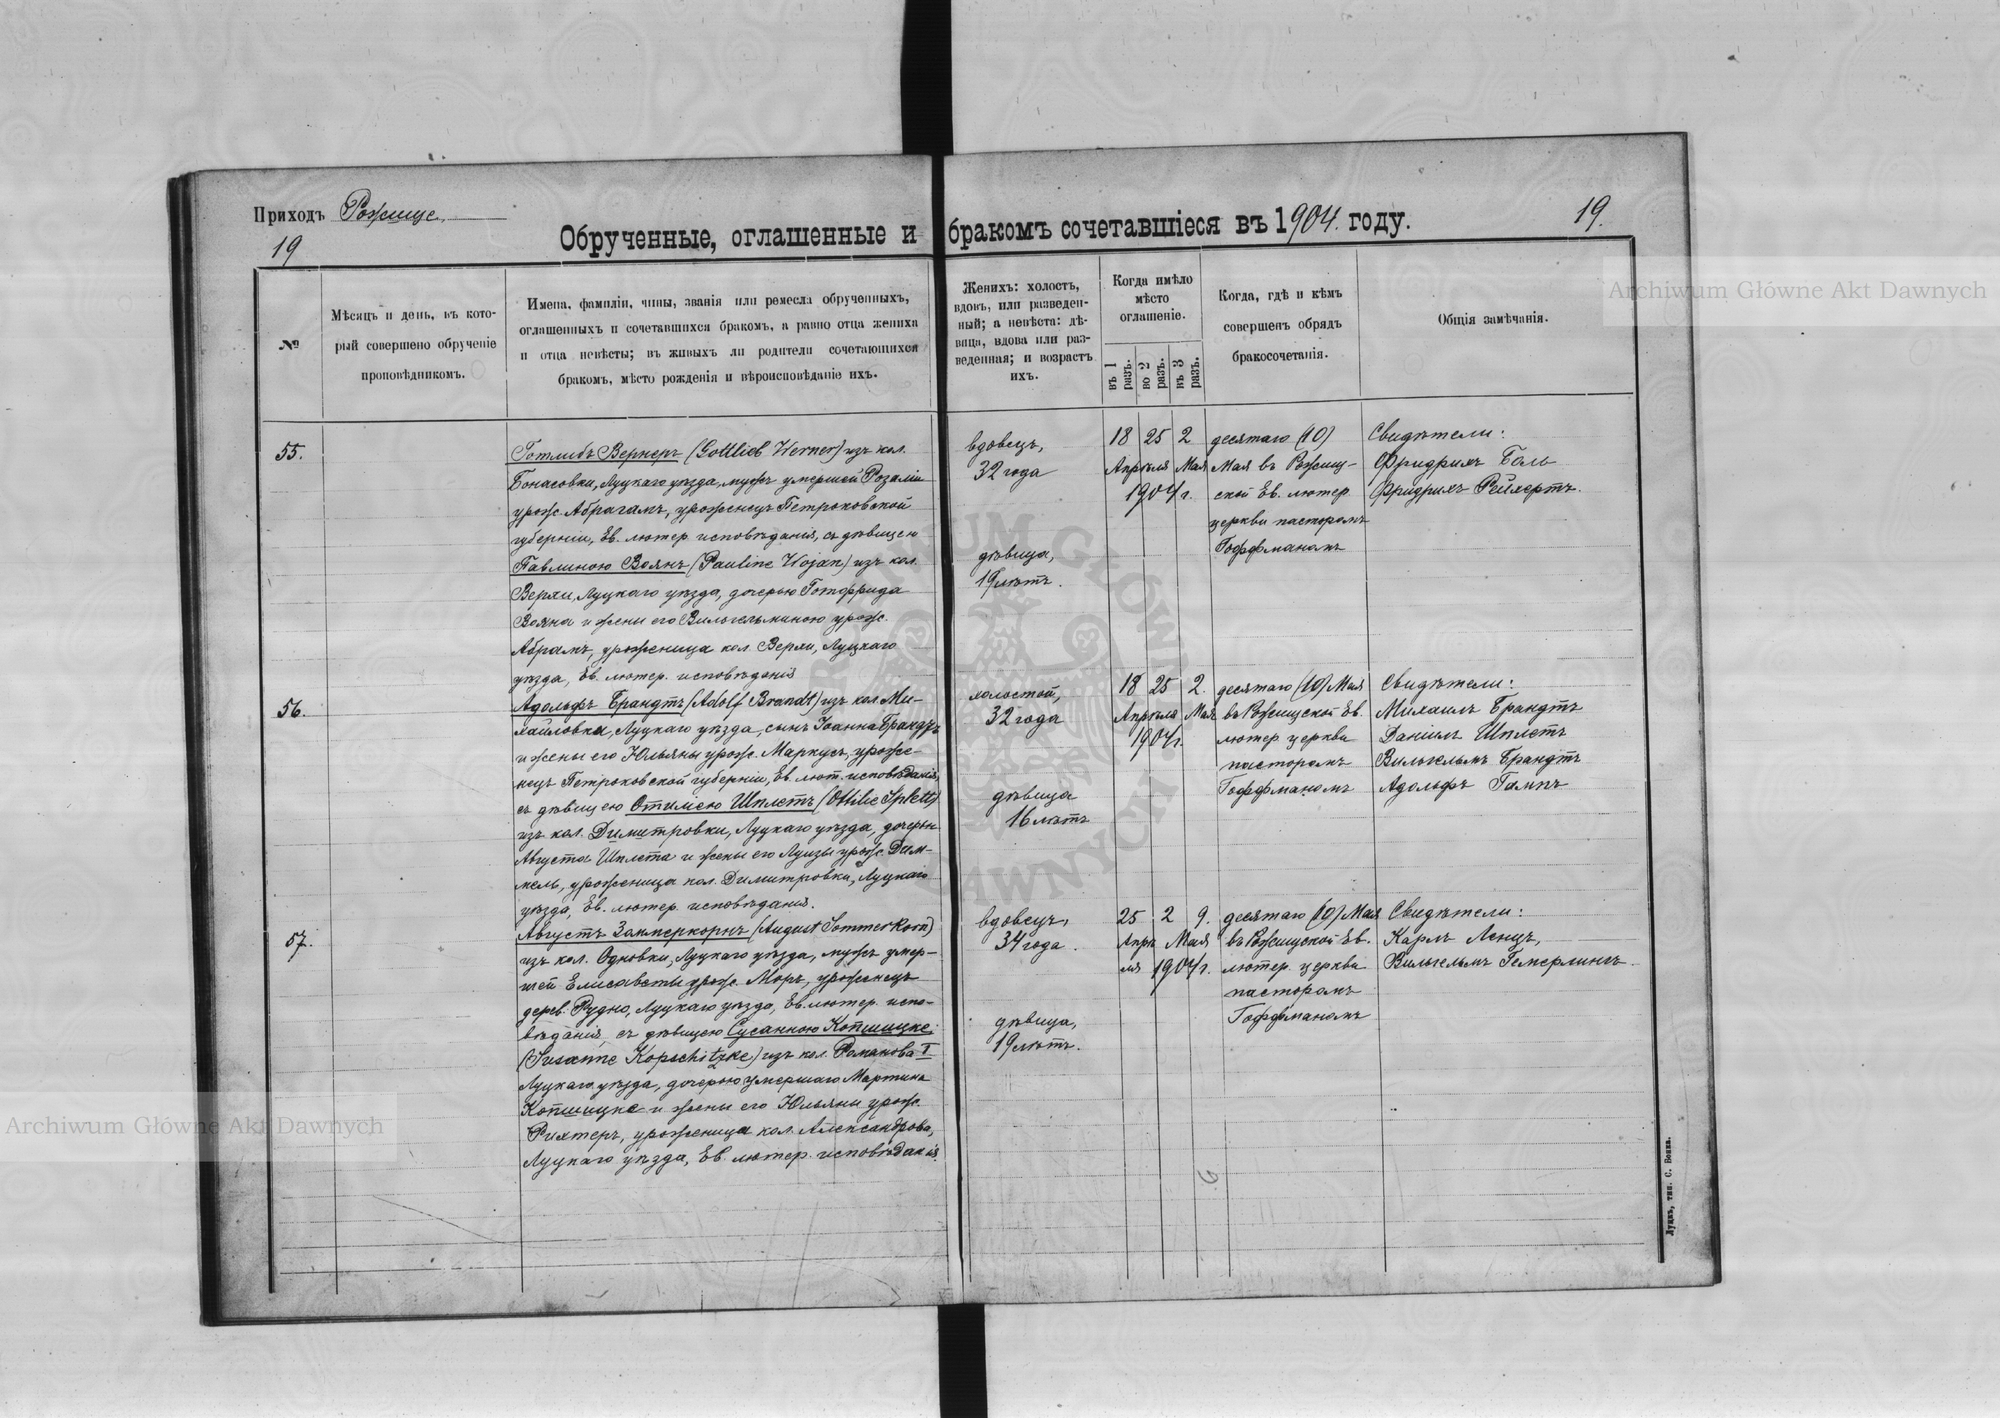 Приходъ Рожище.
19
19.
Обрученные, оглашенные и бракомъ сочетавшіеся въ 1904. году.
№
Мѣсяцъ и день, въ кото-
рый совершено обрученіе
проповѣдникомъ.
Имена, фамиліи, чины, званія или ремесла обрученныхъ,
оглашенныхъ и сочетавшихся бракомъ, а равно отца жениха
и отца невѣсты; въ живыхъ ли родители сочетающихся
бракомъ, мѣсто рожденія и вѣроисповѣданіе ихъ.
Женихъ: холостъ,
вдовъ, или разведен-
ный; а невѣста: дѣ-
вица, вдова или раз-
веденная; и возрастъ
ихъ.
Когда имѣло
мѣсто
оглашеніе.
въ 1 разъ.
во 2 разъ.
въ 3 разъ.
Когда, гдѣ и кѣмъ
совершенъ обрядъ
бракосочетанія.
Общія замѣчанія.
55.
Готлибъ Вернеръ (Gottlieb Werner) изъ кол.
Бонасовки, Луцкаго уѣзда, мужъ умершей Розаліи
урож. Абрагамъ, уроженецъ Петроковской
губерніи, Ев. лютер. исповѣданія, съ дѣвицею
Павлиною Воянъ (Pauline Wojan) изъ кол.
Верхи, Луцкаго уѣзда, дочерью Готфрида
Вояна и жены его Вильгельминою урож.
Абрамъ, уроженица кол. Верхи, Луцкаго
уѣзда, Ев. лютер. исповѣданія
вдовецъ,
32 года
дѣвица,
19 лѣтъ.
18 25 2
Апрѣля Мая
1904 г.
десятаго (10)
Мая въ Рожищ-
ской Ев. лютер.
церкви пасторомъ
Гоффманомъ
Свидѣтели:
Фридрихъ Боль
Фридрихъ Рейхертъ.
56.
Адольфъ Брандтъ (Adolf Brandt) изъ кол. Ми-
хайловка, Луцкаго уѣзда, сынъ Іоанна Брандтъ
и жены его Юльяны урож. Маркусъ, уроже-
нецъ Петроковской губерніи, Ев. лют. исповѣданія,
съ дѣвицею Отиліею Шплетъ (Ottilie Splett)
изъ кол. Димитровки, Луцкаго уѣзда, дочерью
Августа Шплета и жены его Луизы урож. Дим-
мель, уроженица кол. Димитровки, Луцкаго
уѣзда, Ев. лютер. исповѣданія.
холостой,
32 года
дѣвица
16 лѣтъ
18 25 2.
Апрѣля Мая
1904 г.
десятаго (10) Мая
въ Рожищской Ев.
лютер. церкви
пасторомъ
Гоффманомъ
Свидѣтели:
Михаилъ Брандтъ
Даніилъ Шплетъ
Вильгельмъ Брандтъ
Адольфъ Гампъ
57.
Августъ Заммеркорнъ (August Sommerkorn)
изъ кол. Одновки, Луцкаго уѣзда, мужъ умер-
шей Елисаветы урож. Моръ, уроженецъ
дерев. Рудно, Луцкаго уѣзда, Ев. лютер. испо-
вѣданія, съ дѣвицею Сусанною Копшицке
(Susanne Kopschitzke) изъ кол. Романова I
Луцкаго уѣзда, дочерью умершаго Мартина
Копшицке и жены его Юльяны урож.
Рихтеръ, уроженица кол. Александрова,
Луцкаго уѣзда, Ев. лютер. исповѣданія.
вдовецъ,
34 года.
дѣвица,
19 лѣтъ.
25 2 9.
Апрѣ Мая
ля 1904 г.
десятаго (10) Мая
въ Рожищской Ев.
лютер. церкви
пасторомъ
Гоффманомъ
Свидѣтели:
Карлъ Ленцъ,
Вильгельмъ Гемерлингъ.
Луцкъ, тип. С. Бокв.
Archiwum Główne Akt Dawnych
Archiwum Główne Akt Dawnych
ARCHIWUM GŁÓWNE AKT DAWNYCH